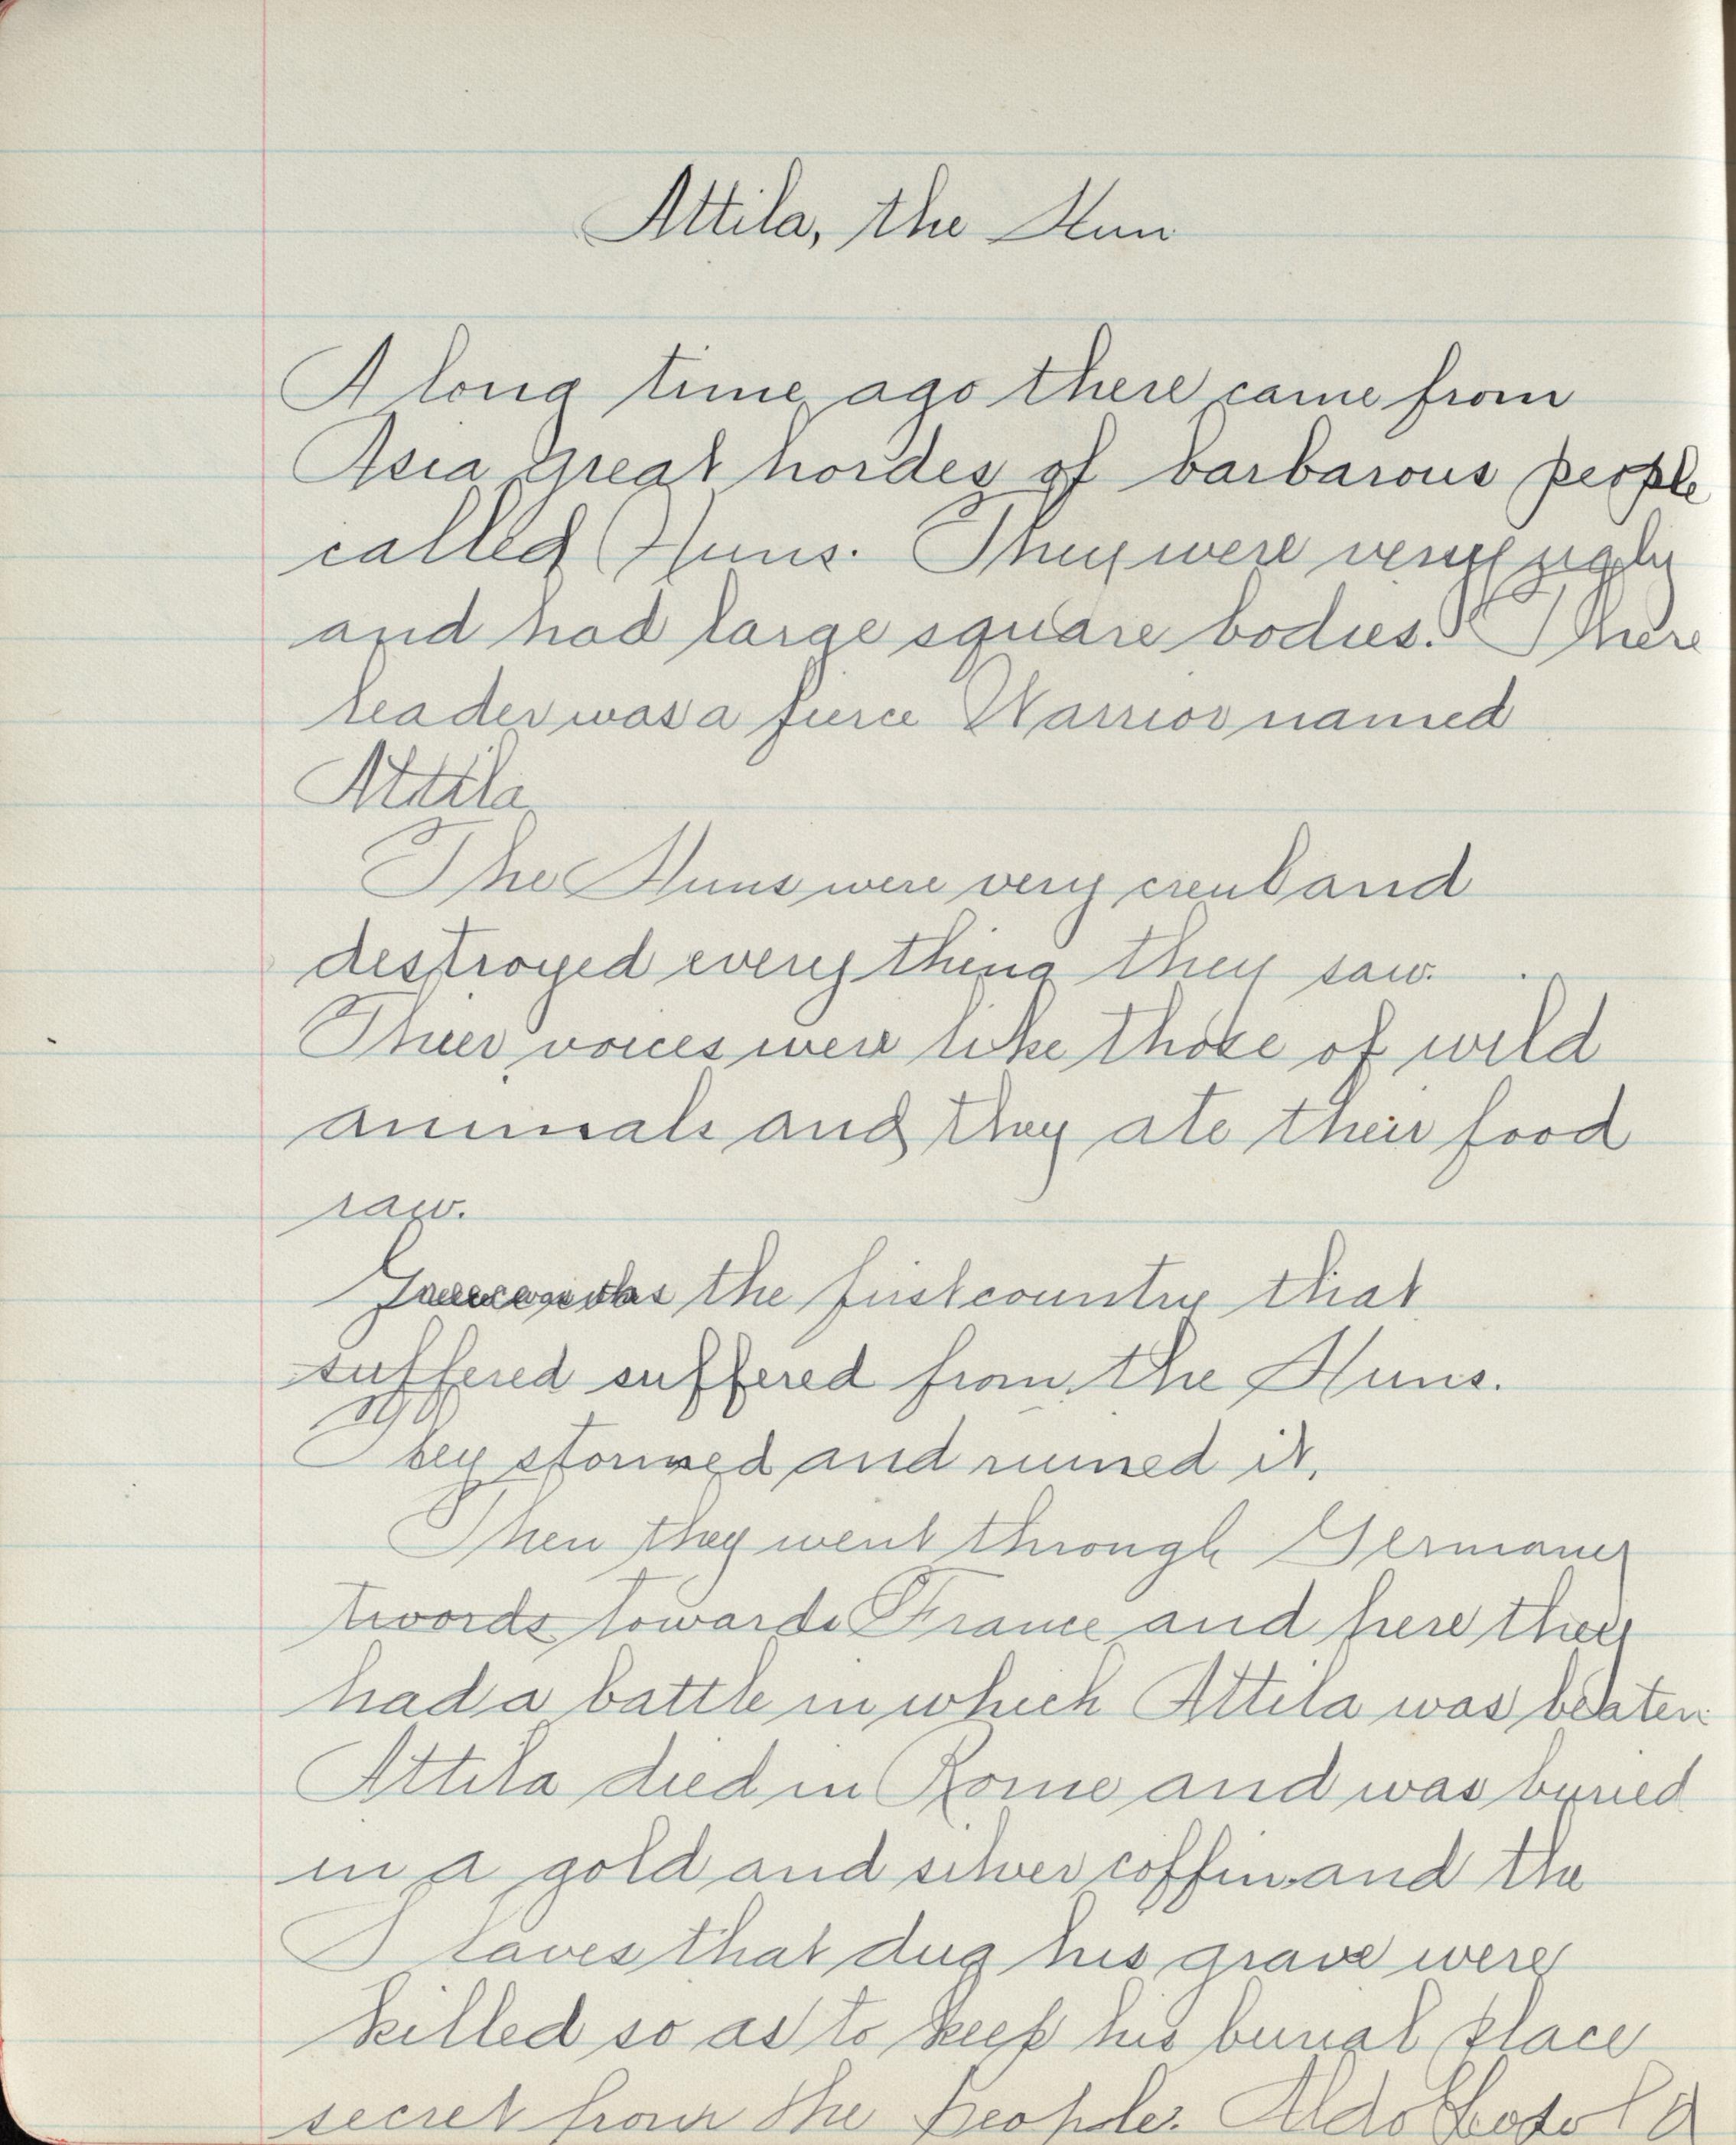 Attila, the Hun
A long time ago there came from
Asia great hordes of barbarous people
called Huns. They were very ugly
and had large square bodies. There
leader was a fierce Warrior named
Attila.
The Huns were very creul and
destroyed every thing they saw.
Thier voices were like those of wild
animals and they ate their food
raw.
was the first country that
suffered suffered from the Huns.
They stormed and ruined it.
Then they went through Germany
twords towards France and here they
had a battle in which Attila was beaten
Attila died in Rome and was buried
in a gold and silver coffin and the
Slaves that dug his grave were
killed so as to keep his burial place
secret from the people. Aldo